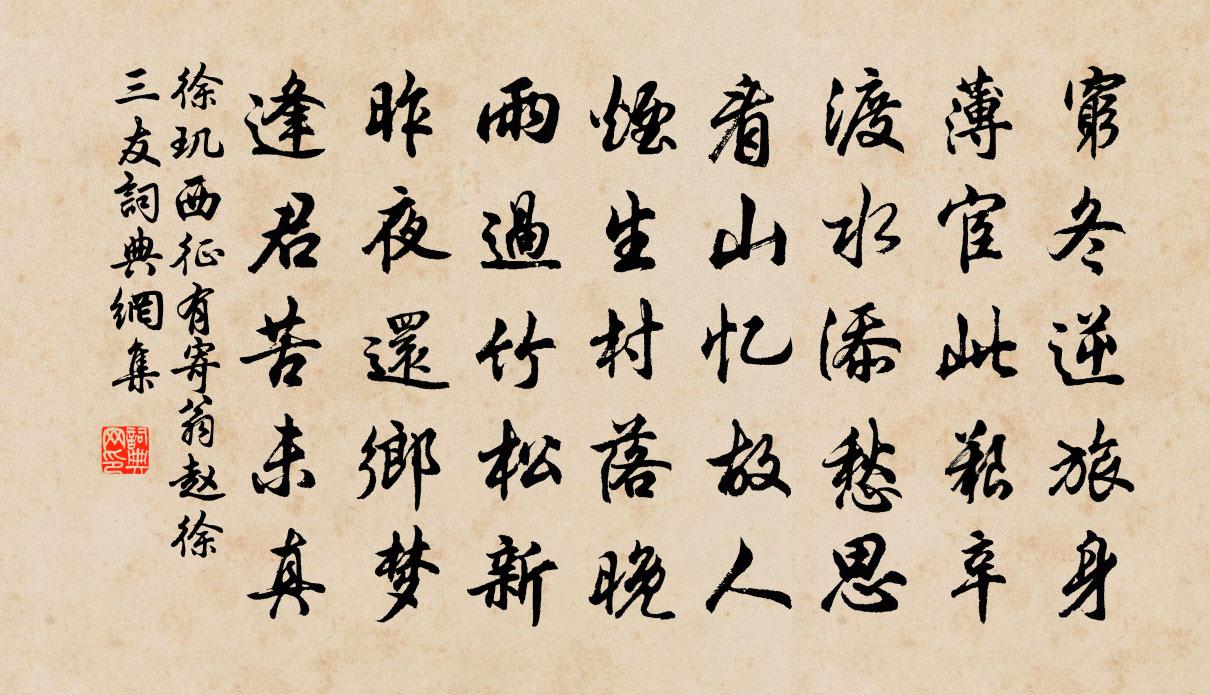 窮冬逆旅身
薄宦此艱辛
渡水添愁思
看山忆故人
煙生村落晚
雨過竹松新
昨夜還鄉梦
逢君苦未真
徐玑西征有寄翁赵徐
三友詞典網集
詞典网印